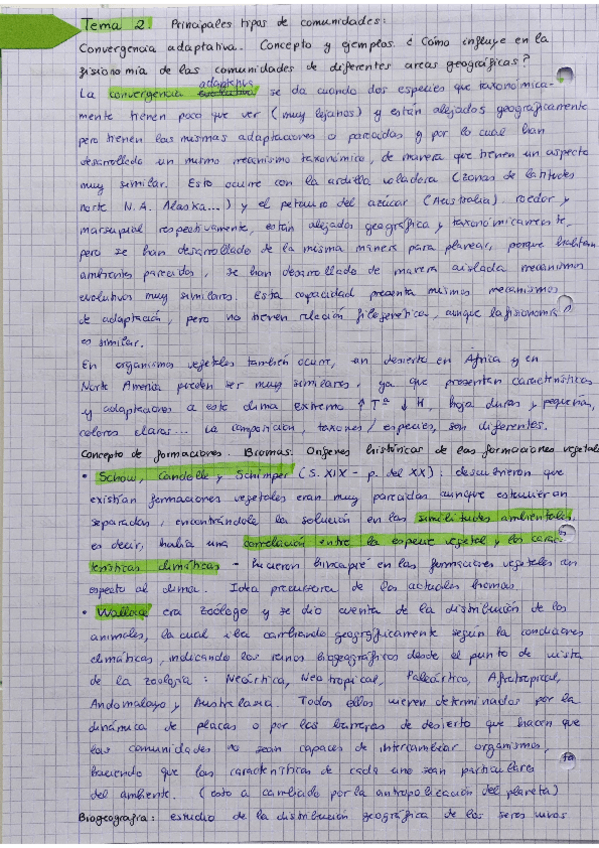 Tema 2. Principales tipos de comunidades:
Convergencia adaptativa. Concepto y ejemplos. ¿Cómo influye en la
fisionomía de las comunidades de diferentes areas geográficas?
La convergencia evolutiva adaptativa se da cuando dos especies que taxonómica-
mente tienen poco que ver (muy lejanos) y están alejados geográficamente
pero tienen las mismas adaptaciones o parecidas y por lo cual han
desarrollado un mismo mecanismo taxonómico, de manera que tienen un aspecto
muy similar. Esto ocurre con la ardilla voladora (zonas de latitudes
norte N.A. Alaska...) y el petauro del azúcar (Australia). roedor y
marsupial respectivamente, están alejados geográfica y taxonómicamente,
pero se han desarrollado de la misma manera para planear, porque habitan
ambientes parecidos, se han desarrollado de manera aislada mecanismos
evolutivos muy similares. Esta capacidad presenta mismos mecanismos
de adaptación, pero no tienen relación filogenética, aunque la fisionomía
es similar.
En organismos vegetales también ocurre, un desierto en África y en
Norte América pueden ser muy similares, ya que presentan características
y adaptaciones a este clima extremo ↑Tª ↓H, hoja duras y pequeñas,
colores claros... La composición, taxones/especies, son diferentes.
Concepto de formaciones. Biomas. Orígenes históricos de las formaciones vegetales
• Schow, Candolle y Schimper (S. XIX - p. del XX): descubrieron que
existían formaciones vegetales eran muy parecidas aunque estuvieran
separadas, encontrándole la solución en las similitudes ambientales,
es decir, había una correlación entre la especie vegetal y las carac-
terísticas climáticas - hicieron hincapié en las formaciones vegetales con
respecto al clima. Idea precursora de los actuales biomas.
• Wallace era zoólogo y se dio cuenta de la distribución de los
animales, la cual iba cambiando geográficamente según la condiciones
climáticas, indicando los reinos biogeográficos desde el punto de vista
de la zoología: Neártica, Neotropical, Paleártica, Afrotropical,
Andomalaya y Australasia. Todos ellos vienen determinados por la
dinámica de placas o por las barreras de desierto que hacen que
las comunidades no sean capaces de intercambiar organismos,
haciendo que las características de cada uno sean particulares
del ambiente. (esto a cambiado por la antropolicación del planeta)
Biogeografía: estudio de la distribución geográfica de los seres vivos